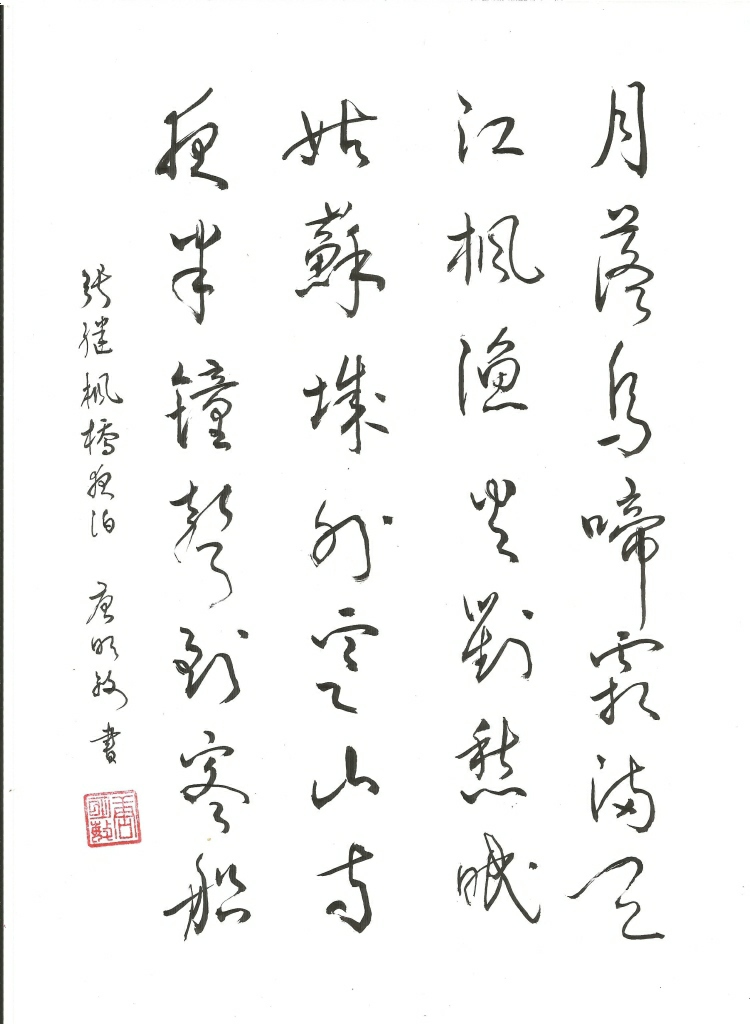 月落烏啼霜滿天
江楓漁火對愁眠
姑蘇城外寒山寺
夜半鐘聲到客船
張繼楓橋夜泊 唐明敏書
唐明敏